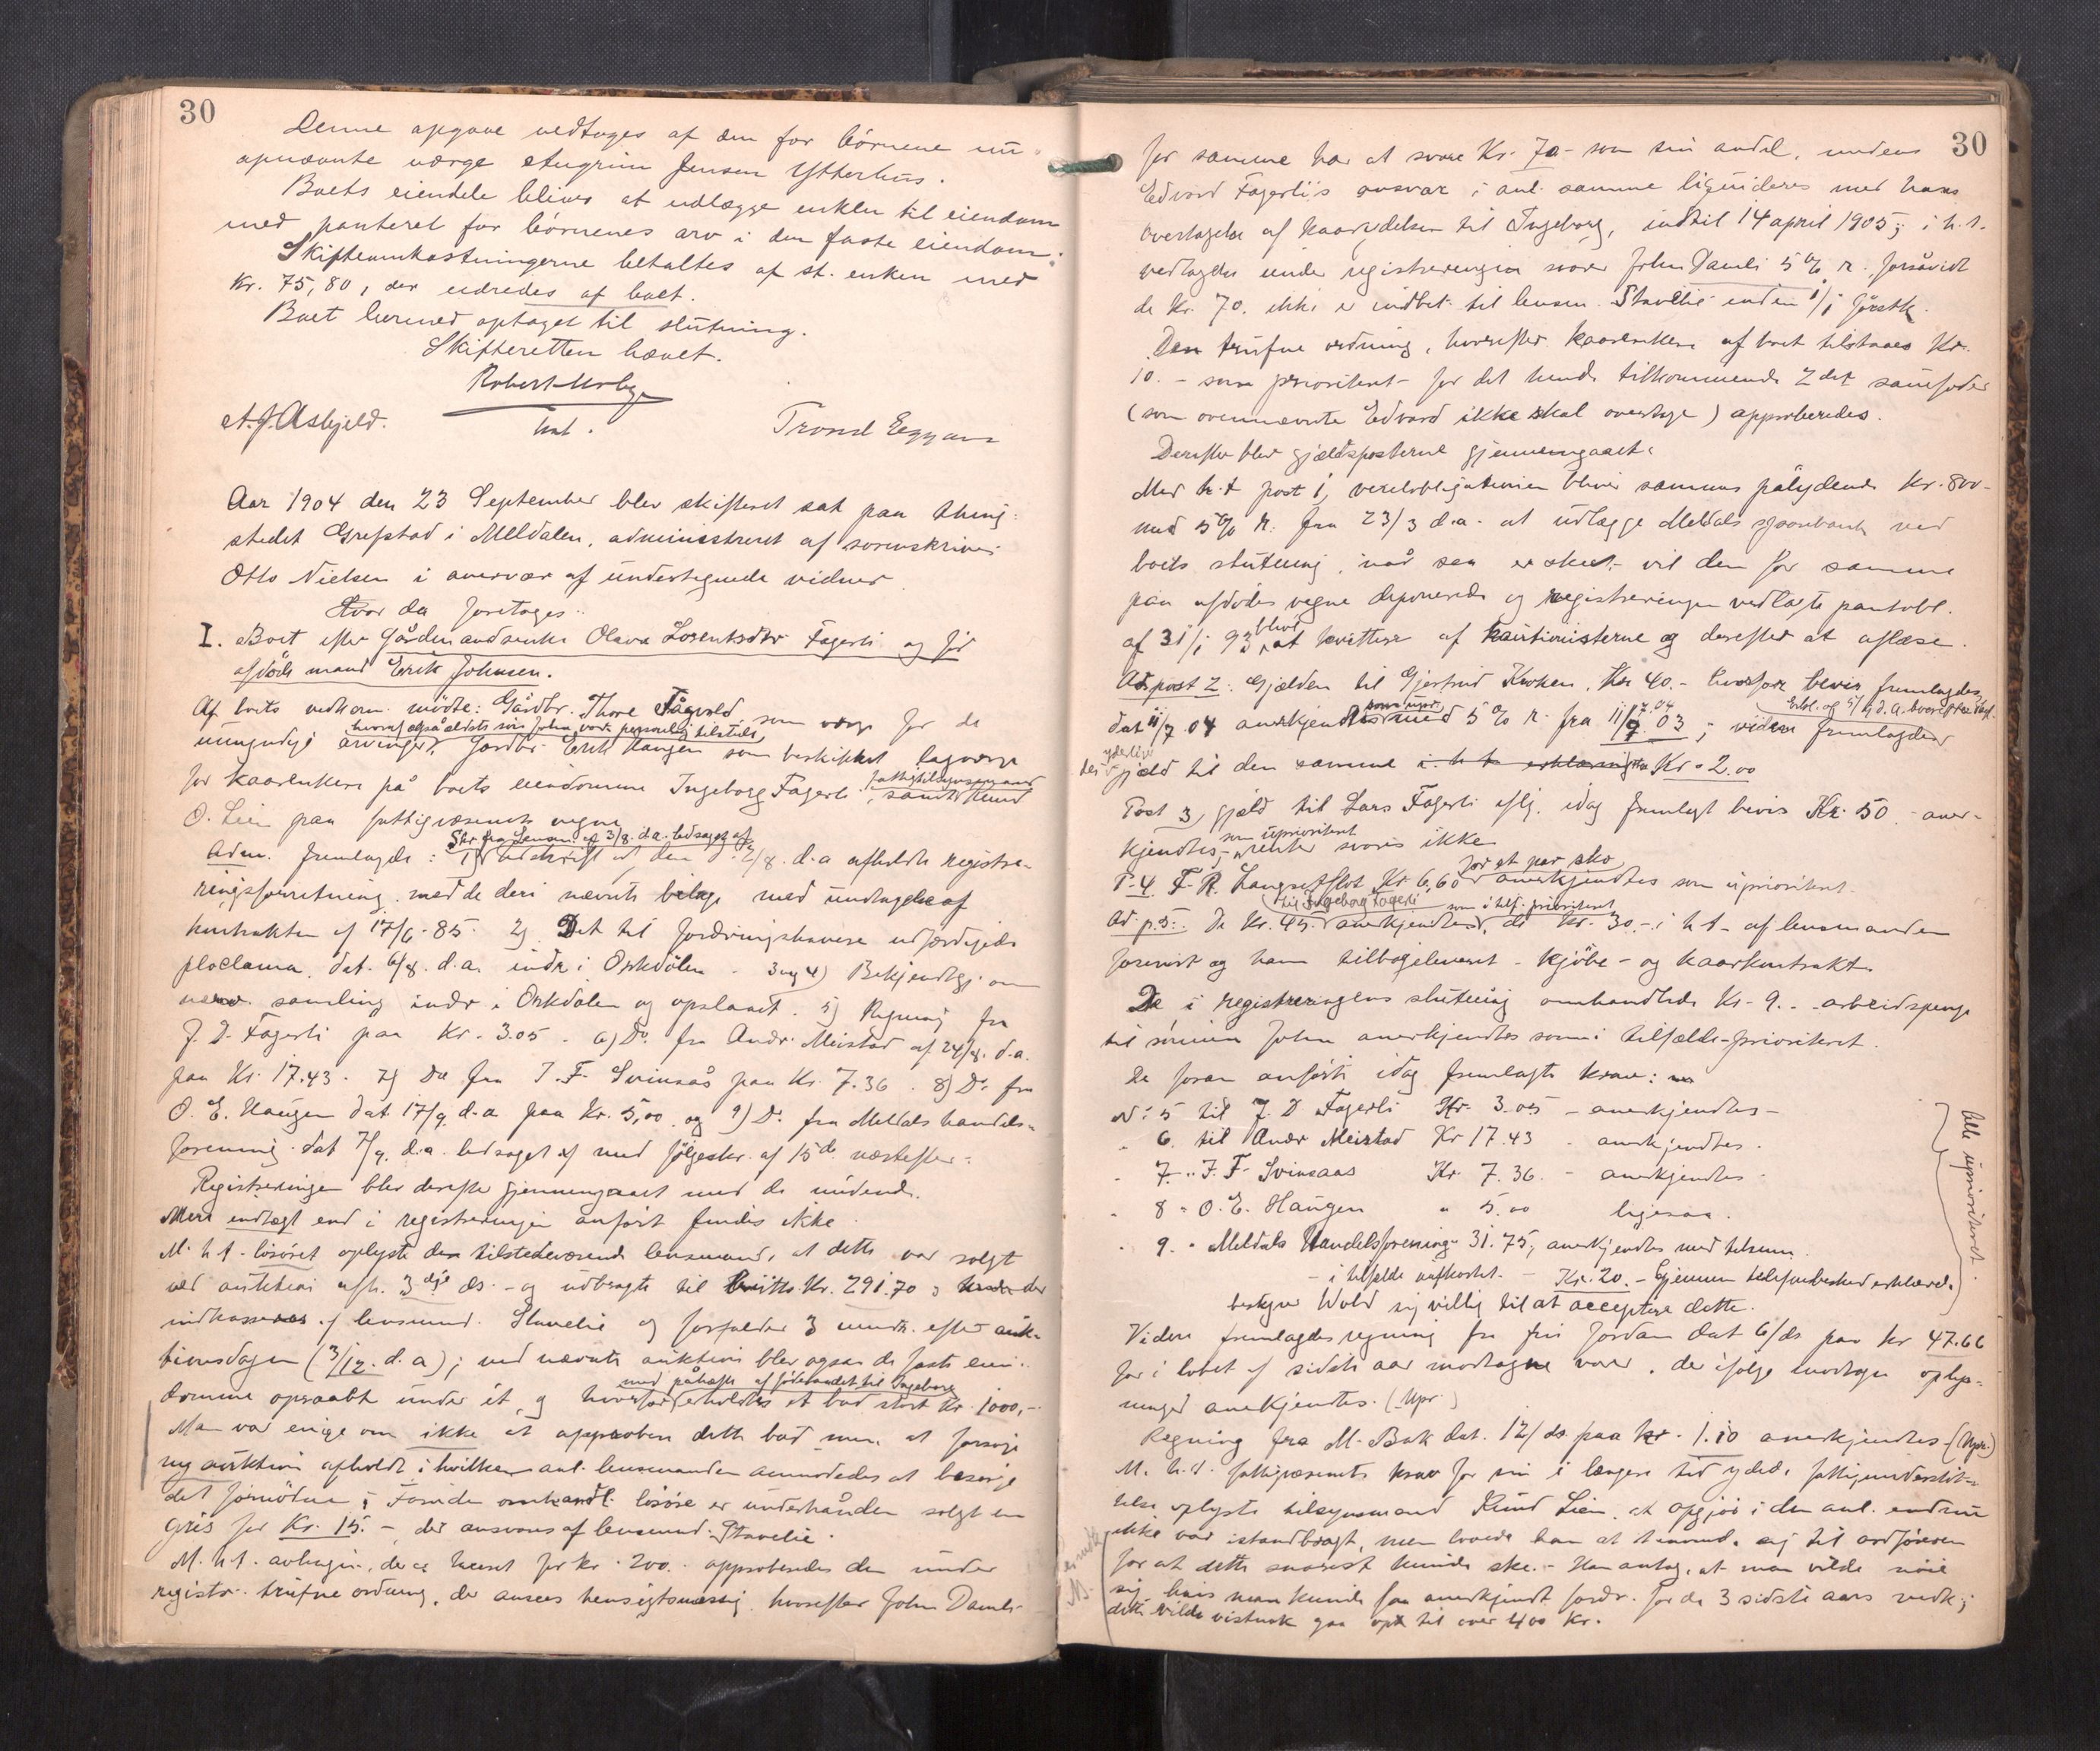 30
Denne opgave vedtoges af den for börnene nu
opnævnte værge Arngrim Jensen Ytterhus.
Boets eiendele bliver at udlægge enken til eiendom
med panteret for börnenes arv i den faste eiendom.
Skifteomkostningerne betaltes af st. enken med
Kr. 75,80, der udredes af boet.
Boet hermed optaget til slutning.
Skifteretten hævet.
Robert
A. J. Asbjeld. Trond Eggan
Aar 1904 den 23 September blev skifteret sat paa thing-
stedet Grefstad i Meldalen, administreret af sorenskriver
Otto Nielsen i overvær af undertegnede vidner
Hvor da foretoges:
I. Boet efter Gårdmandsenke Olava Lorentsdtr Fagerli og för
afdöde mand Erik Johnsen.
Af boets vedkom. mödte: Gårdbr. Thore Fagvold som værge for de
hvoraf også ældste sön John vare personlig tilstede
umyndige arvinger, Gårdbr. Erik Haugen som beskikket lagværge
for kaarenken på boets eiendomme Ingeborg Fagerli, samt fattigtilsynsmand Knud
O. Lien paa fattigvæsenets vegne
Skr. fra Lensm. af 3/8. d.a. ledsaget af
Adm. fremlagde: 1) Udskrift af den 2/8. d.a afholdte registre-
ringsforretning med de deri nævnte bilage med undtagelse af
kontrakten af 17/6-85. 2) Det til fordringshavere udfærdigede
proclama, dat. 6/8. d.a. indr. i Orkdölen - 3 og 4) Bekjendtgj. om
nærv. samling indr. i Orkdölen og opslaaet. 5) Regning fra
J. D. Fagerli paa Kr. 3.05 - 6) Do. fra Andr. Meistad af 24/8. d.a.
paa Kr. 17.43. 7) Do fra I. F. Svinsås paa Kr. 7.36. 8) Do. fra
O. E. Haugen dat. 17/9 d.a paa Kr. 5,00 og 9) Do. fra Meldals handels-
forening dat 7/9. d.a. ledsaget af med fölgeskr. af 15de næstefter:
Registreringen blev derefter gjennemgaaet med de mödende.
Mere endlagt end i registreringen anfört fandtes ikke.
M. h. t. lösöret oplyste den tilstedeværende lensmand, at dette var solgt
ved auktion afh. 3dje ds. - og udbragt til brutto Kr. 291.70; der
indkasseres af lensmand Stavelie og forfalder 3 mndr. efter auk-
tionsdagen (3/12. d.a); ved nævnte auktion blev ogsaa de faste eien-
med påhæfte af föderaadet til Ingeborg
domme opraabt under ét, og hvorfor erholdtes et bud stort Kr. 1000,-
Man var enige om ikke at approbere dette bud men at forsöge
ny auktion afholdt i hvilken anl. lensmanden anmodedes at besørge
det fornödne; Foruden omhandl. lösöre er underhånden solgt en
gris for Kr. 15. - der ansvares af lensmd. Stavelie.
M. h. t. avlingen, der er taxeret for kr. 200. approberedes den under
registr. trufne ordning, der ansees hensigtsmæssig hvorefter John Damli
30
for samme har at svare Kr. 70- som sin andel, medens
Edvard Fagerli's ansvar i anl. samme ligvideres med hans
overtagelse af kaarydelsen til Ingeborg, indtil 14 april 1905; i h. t.
vedtagelse under registreringen svarer John Damli 5% r. forsåvidt
de Kr. 70. ikke er indbet. til lensm. Stavelie inden 1/1 förstk.
Den trufne ordning, hvorefter kaarenken af boet tilstaaes Kr.
10. - som prioriteret - for det hende tilkommende 2 det sauefoder
(som ovennævnte Edvard ikke skal overtage) approberedes.
Derefter blev gjældsposterne gjennemgaaet.
Med h. t. post 1, vexelobligationen bliver sammes pålydende Kr. 800-
med 5% r. fra 23/3 d.a. at udlægge Meldals sparebank ved
boets slutning; når saa er skeet, vil den for samme
paa afdödes vegne deponerede og registreringen vedlagte pantobl.
af 31/1 93 blive at kvittere af kautionisterne og derefter at aflæse.
Ad post 2: Gjælden til Gjertrud Kroken, Kr 40. - hvorfor bevis fremlagdes
dat 11/7 04 anerkjendtes som upr. med 5% r. fra 11/7. 03; videre fremlagdes
yderlig
gjæld til den samme i h t erklæring Kr. 2.00
Post 3, gjæld til Lars Fagerli iflg. idag fremlagt bevis Kr. 50 - aner-
kjendtes, som uprioriteret - renter svares ikke
P. 4. F. R. Langsetflot Kr 6,60 for et par sko anerkjendtes som uprioriteret.
til Ingeborg Fagerli som i tilf. prioriteret
Ad. p. 5: De Kr. 45. anerkjendtes, de Kr. 30.- i h t. af lensmanden
forevist og ham tilbageleveret kjöbe- og kaarkontrakt.
De i registreringens slutning omhandlede Kr. 9. - arbeidspenge
til sönnen John anerkjendtes som i tilfælde-prioriteret.
De foran anförte idag fremlagte krav:
N: 5 til J. D Fagerli Kr. 3.05 - anerkjendtes -
" 6. til Andr Meistad Kr 17.43 - anerkjendtes.
" 7 " I. F. Svinsaas Kr. 7.36. - anerkjendtes -
" 8 " O. E. Haugen " 5.00 ligesaa.
" 9. " Meldals Handelsforening 31.75, anerkjendtes med
- i tilfælde - Kr. 20. - Gjennem telefonbesked erklærede
bestyrer Wold sig villig til at acceptere dette.
Alle uprioriteret.
Videre fremlagdes regning fra fru Jordan dat 6/ds paa kr 47.66
for i löbet af sidste aar modtagne varer, der ifölge modtagne oplys-
ninger anerkjendtes. (Upr)
Regning fra M. Bak dat. 12/ ds. paa kr. 1.10 anerkjendtes - (Upr.)
M. h. t. fattigvæsenets krav for sin i længere tid ydede fattigunderstöt-
telse oplyste tilsynsmand Knud Lien, at opgjör i den anl. endnu
ikke var istandbragt, men lovede han at henvend. sig til ordföreren
for at dette snarest kunde ske. - Han antog, at man vilde nöie
sig hvis man kunde faa anerkjendt fordr. for de 3 sidste aars vedk.;
dette vilde vistnok gaa op til over 400 Kr.